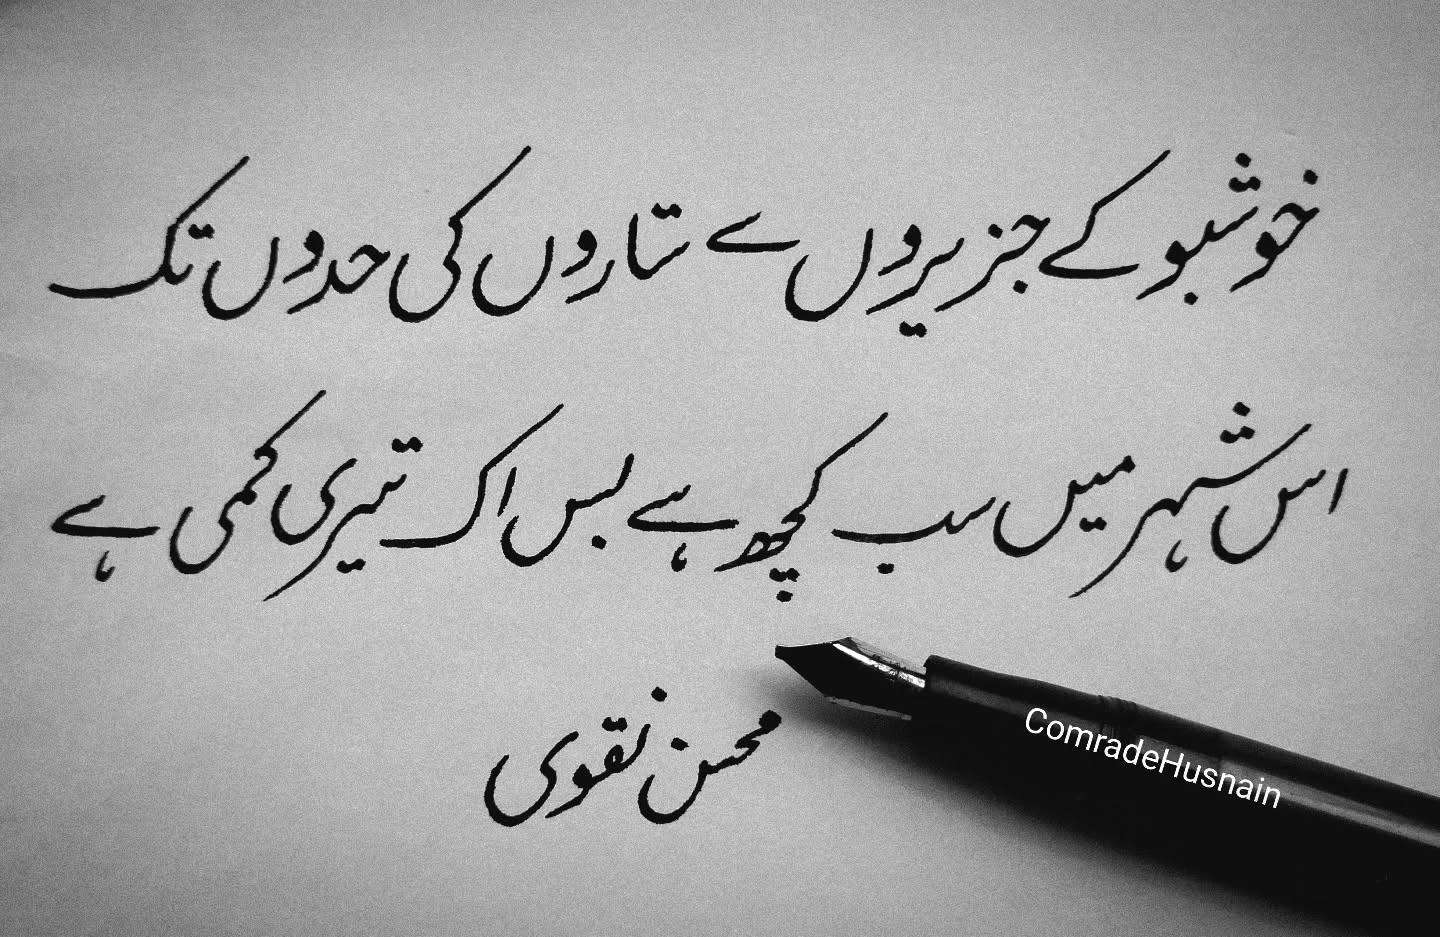 خوشبو کے جزیروں سے ستاروں کی حدوں تک
اس شہر میں سب کچھ ہے بس اک تیری کمی ہے
محسن نقوی
ComradeHusnain